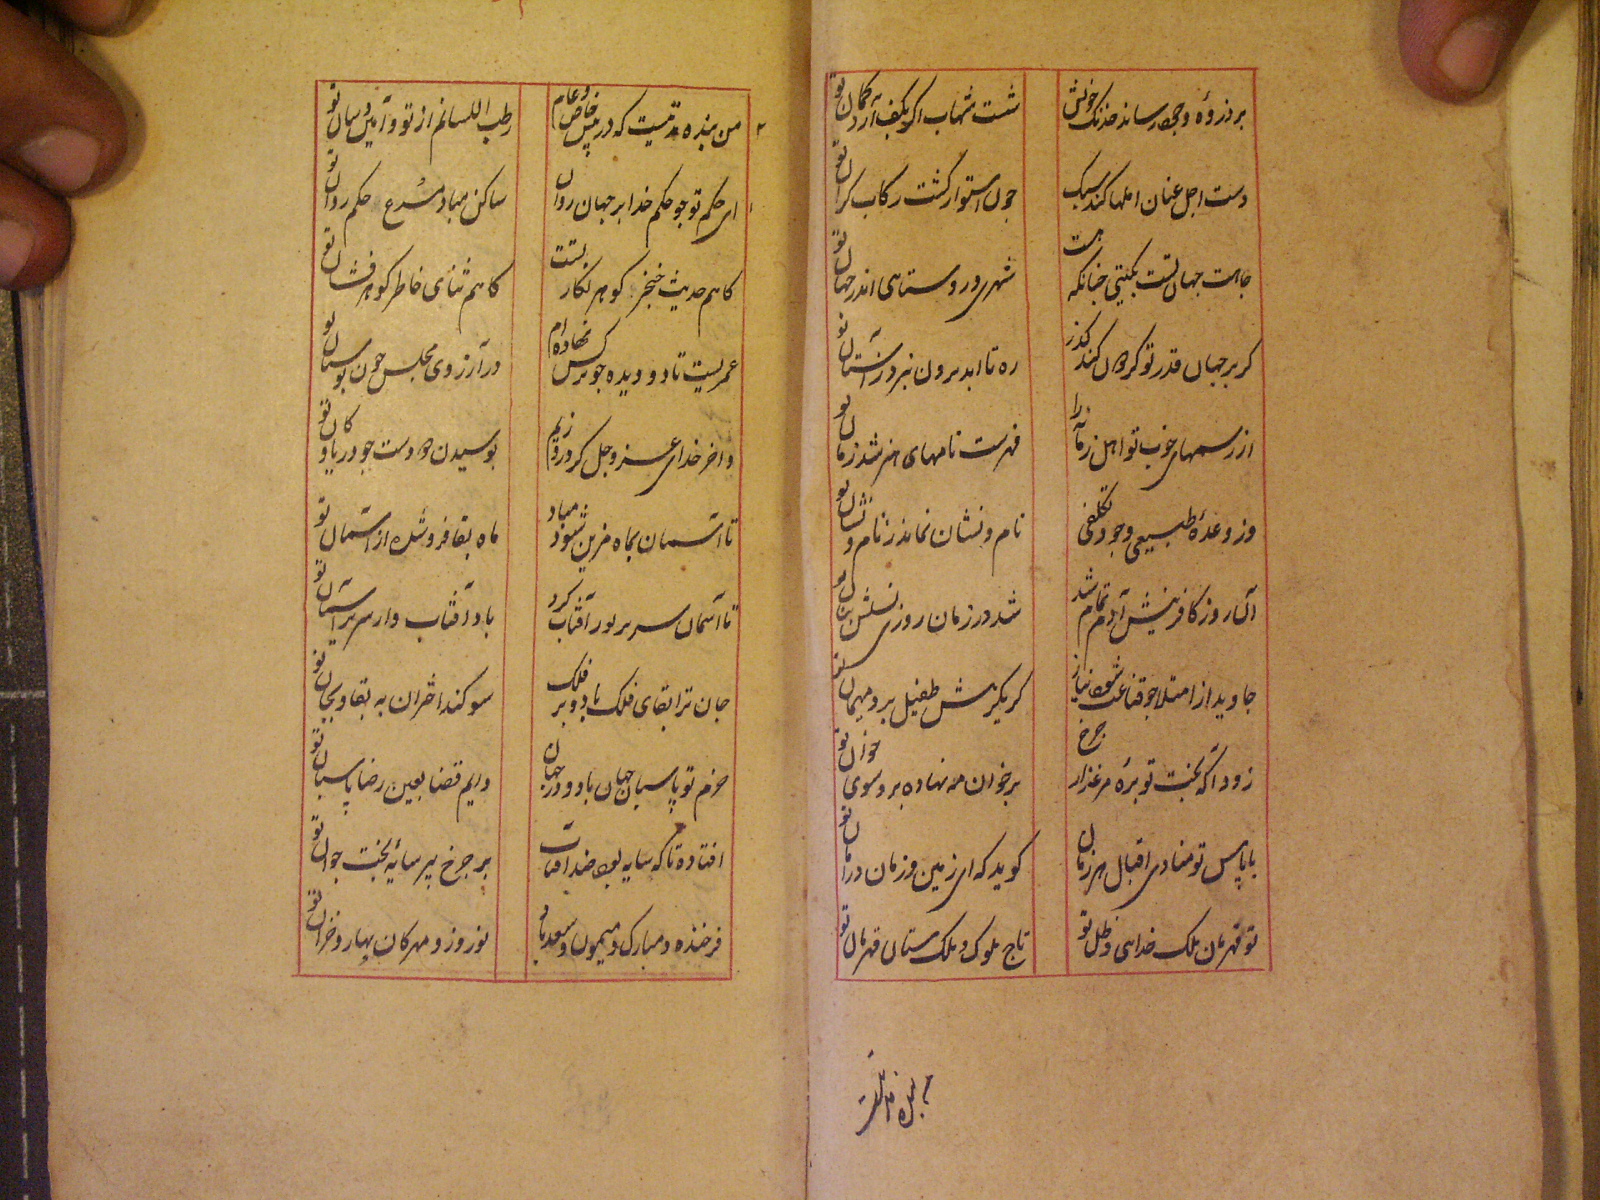 بر ذروهٔ وجود رساند خدنگ خویش شست شهاب اگر بکف آرد کمان تو
دست اجل عنان املها کند سبک چون استوار گشت رکاب گران تو
جاهت جهان تست بگیتی چنانکه هست شهری و روستاهی اندر جهان تو
کر بر جهان قدر تو کردون کند کذر ره تا ابد برون نبرد زاستان تو
از رسمهای خوب تو اهل زمانه را فهرست نامهای هنر شد زمان تو
وز وعدهٔ طبیعی وجود تکلفی نام و نشان نماند ز نام و نشان تو
آثار روز کافرینش آدم تمام شد شد در زمان روزی نسلش تو
جاوید از امتلا چو قناعت شود نیاز کر یکرهش طفیل برد میهمان تو
زودا که بخت تو برهٔ مرغزار چرخ بر خوان مه نهاده برد سوی خوان تو
با پاس تو منادی اقبال هر زمان کوید که ای زمین و زمان در امان تو
تو قهرمان ملک خداهی و ظل تو تاج ملوک و ملک ستان قهرمان تو
بنده
من بنده مدتیست که در پیش خاص و عام رطب اللسانم از تو و از تو
ای حکم تو چو حکم خدا بر جهان روان ساکن مباد مسرع حکم روان تو
کاهم حدیث خنجر کوهر نکار تست کاهم ثنای خاطر کوهر فشان تو
عمریست تا دو دیده چو نرکس نهاده ام در آرزوی مجلس چون بوستان تو
و اخر خدای عز و جل کرد روزیم بوسیدن دو دست چو دریا و کان تو
تا آسمان بماه مزین شود مباد ماه بقا فرو شده از آسمان تو
تا آسمان سریر بود آفتاب کرد باد آفتاب وار سریر آستان تو
جان ترا بقای فلک باد و بر فلک سوکند اختران به بقا و بجان تو
حزم تو پاسبان جهان باد و در جهان دایم قضا بعین رضا پاسبان تو
افتاده تا که سایه بود ضد آفتاب بر چرخ پیر سایهٔ بخت جوان تو
فرخنده و مبارک و میمون و سعد باد نوروز و مهرکان بهار و خزان تو